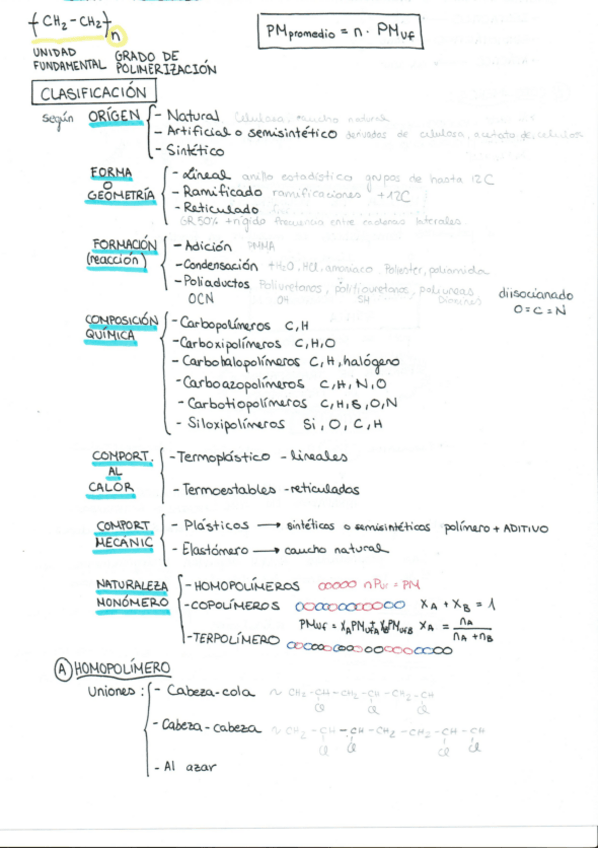 {CH₂-CH₂}n
PMpromedio = n · PMuf
UNIDAD FUNDAMENTAL
GRADO DE POLIMERIZACIÓN
CLASIFICACIÓN
Según ORÍGEN
- Natural Celulosa, caucho natural
- Artificial o semisintético derivados de celulosa, acetato de celulosa
- Sintético
FORMA O GEOMETRÍA
- Lineal anillo estadístico grupos de hasta 12C
- Ramificado ramificaciones +12C
- Reticulado
GR 50% + rígido frecuencia entre cadenas laterales
FORMACIÓN (reacción)
- Adición PMMA
- Condensación +H₂O, HCl, amoniaco Poliester, poliamida
- Poliaductos Poliuretanos, politiouretanos, poliureas diisocianado
OCN OH SH O=C=N
COMPOSICIÓN QUÍMICA
- Carbopolímeros C, H
- Carboxipolímeros C, H, O
- Carbohalopolímeros C, H, halógeno
- Carboazopolímeros C, H, N, O
- Carbotiopolímeros C, H, S, O, N
- Siloxipolímeros Si, O, C, H
COMPORT. AL CALOR
- Termoplástico - lineales
- Termoestables - reticuladas
COMPORT MECÁNIC
- Plásticos → sintéticos o semisintéticos polímero + ADITIVO
- Elastómero → caucho natural
NATURALEZA MONÓMERO
- HOMOPOLÍMEROS nPuf = PM
- COPOLÍMEROS XA + XB = 1
PMuf = XAPMufA + XBPMufB XA = nA / nA + nB
- TERPOLÍMERO
A HOMOPOLÍMERO
Uniones:
- Cabeza-cola ~ CH₂-CH-CH₂-CH-CH₂-CH
Cl Cl Cl
- Cabeza-cabeza ~ CH₂-CH-CH-CH₂-CH₂-CH-CH
Cl Cl Cl Cl
- Al azar